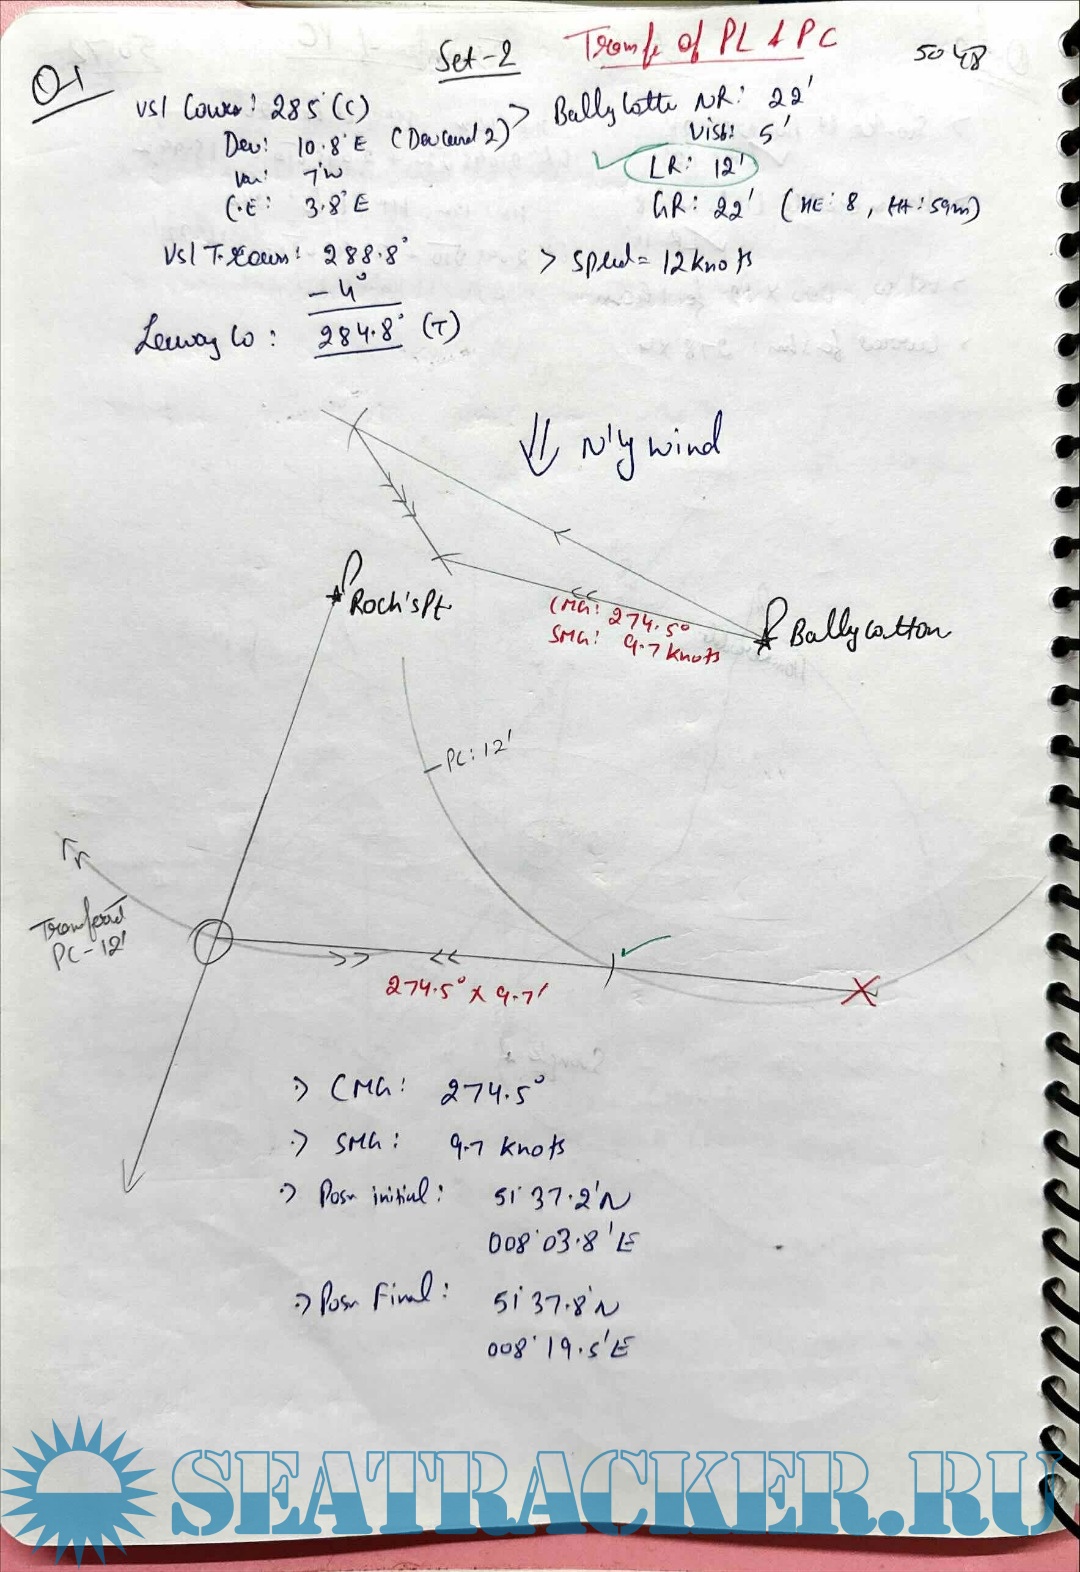 Set-2
Transfe of PL & PC
5048
Q1
Vsl Course: 285° (C)
Dev: 10.8°E (Dev Card 2)
Var: 7°W
C.E: 3.8°E
Vsl T. Course: 288.8°
- 4°
Leeway Co: 284.8° (T)
> Ballycotton NR: 22'
Visb: 5'
LR: 12'
GR: 22' (HE: 8, Ht: 59m)
> Speed = 12 knots
N'ly wind
Roch's Pt
Ballycotton
CMG: 274.5°
SMG: 9.7 knots
PC: 12'
Transferred
PC - 12'
274.5° x 9.7'
CMG: 274.5°
SMG: 9.7 knots
Posn initial: 51° 37.2'N
008° 03.8'E
Posn Final: 51° 37.8'N
008° 19.5'E
SEATRACKER.RU